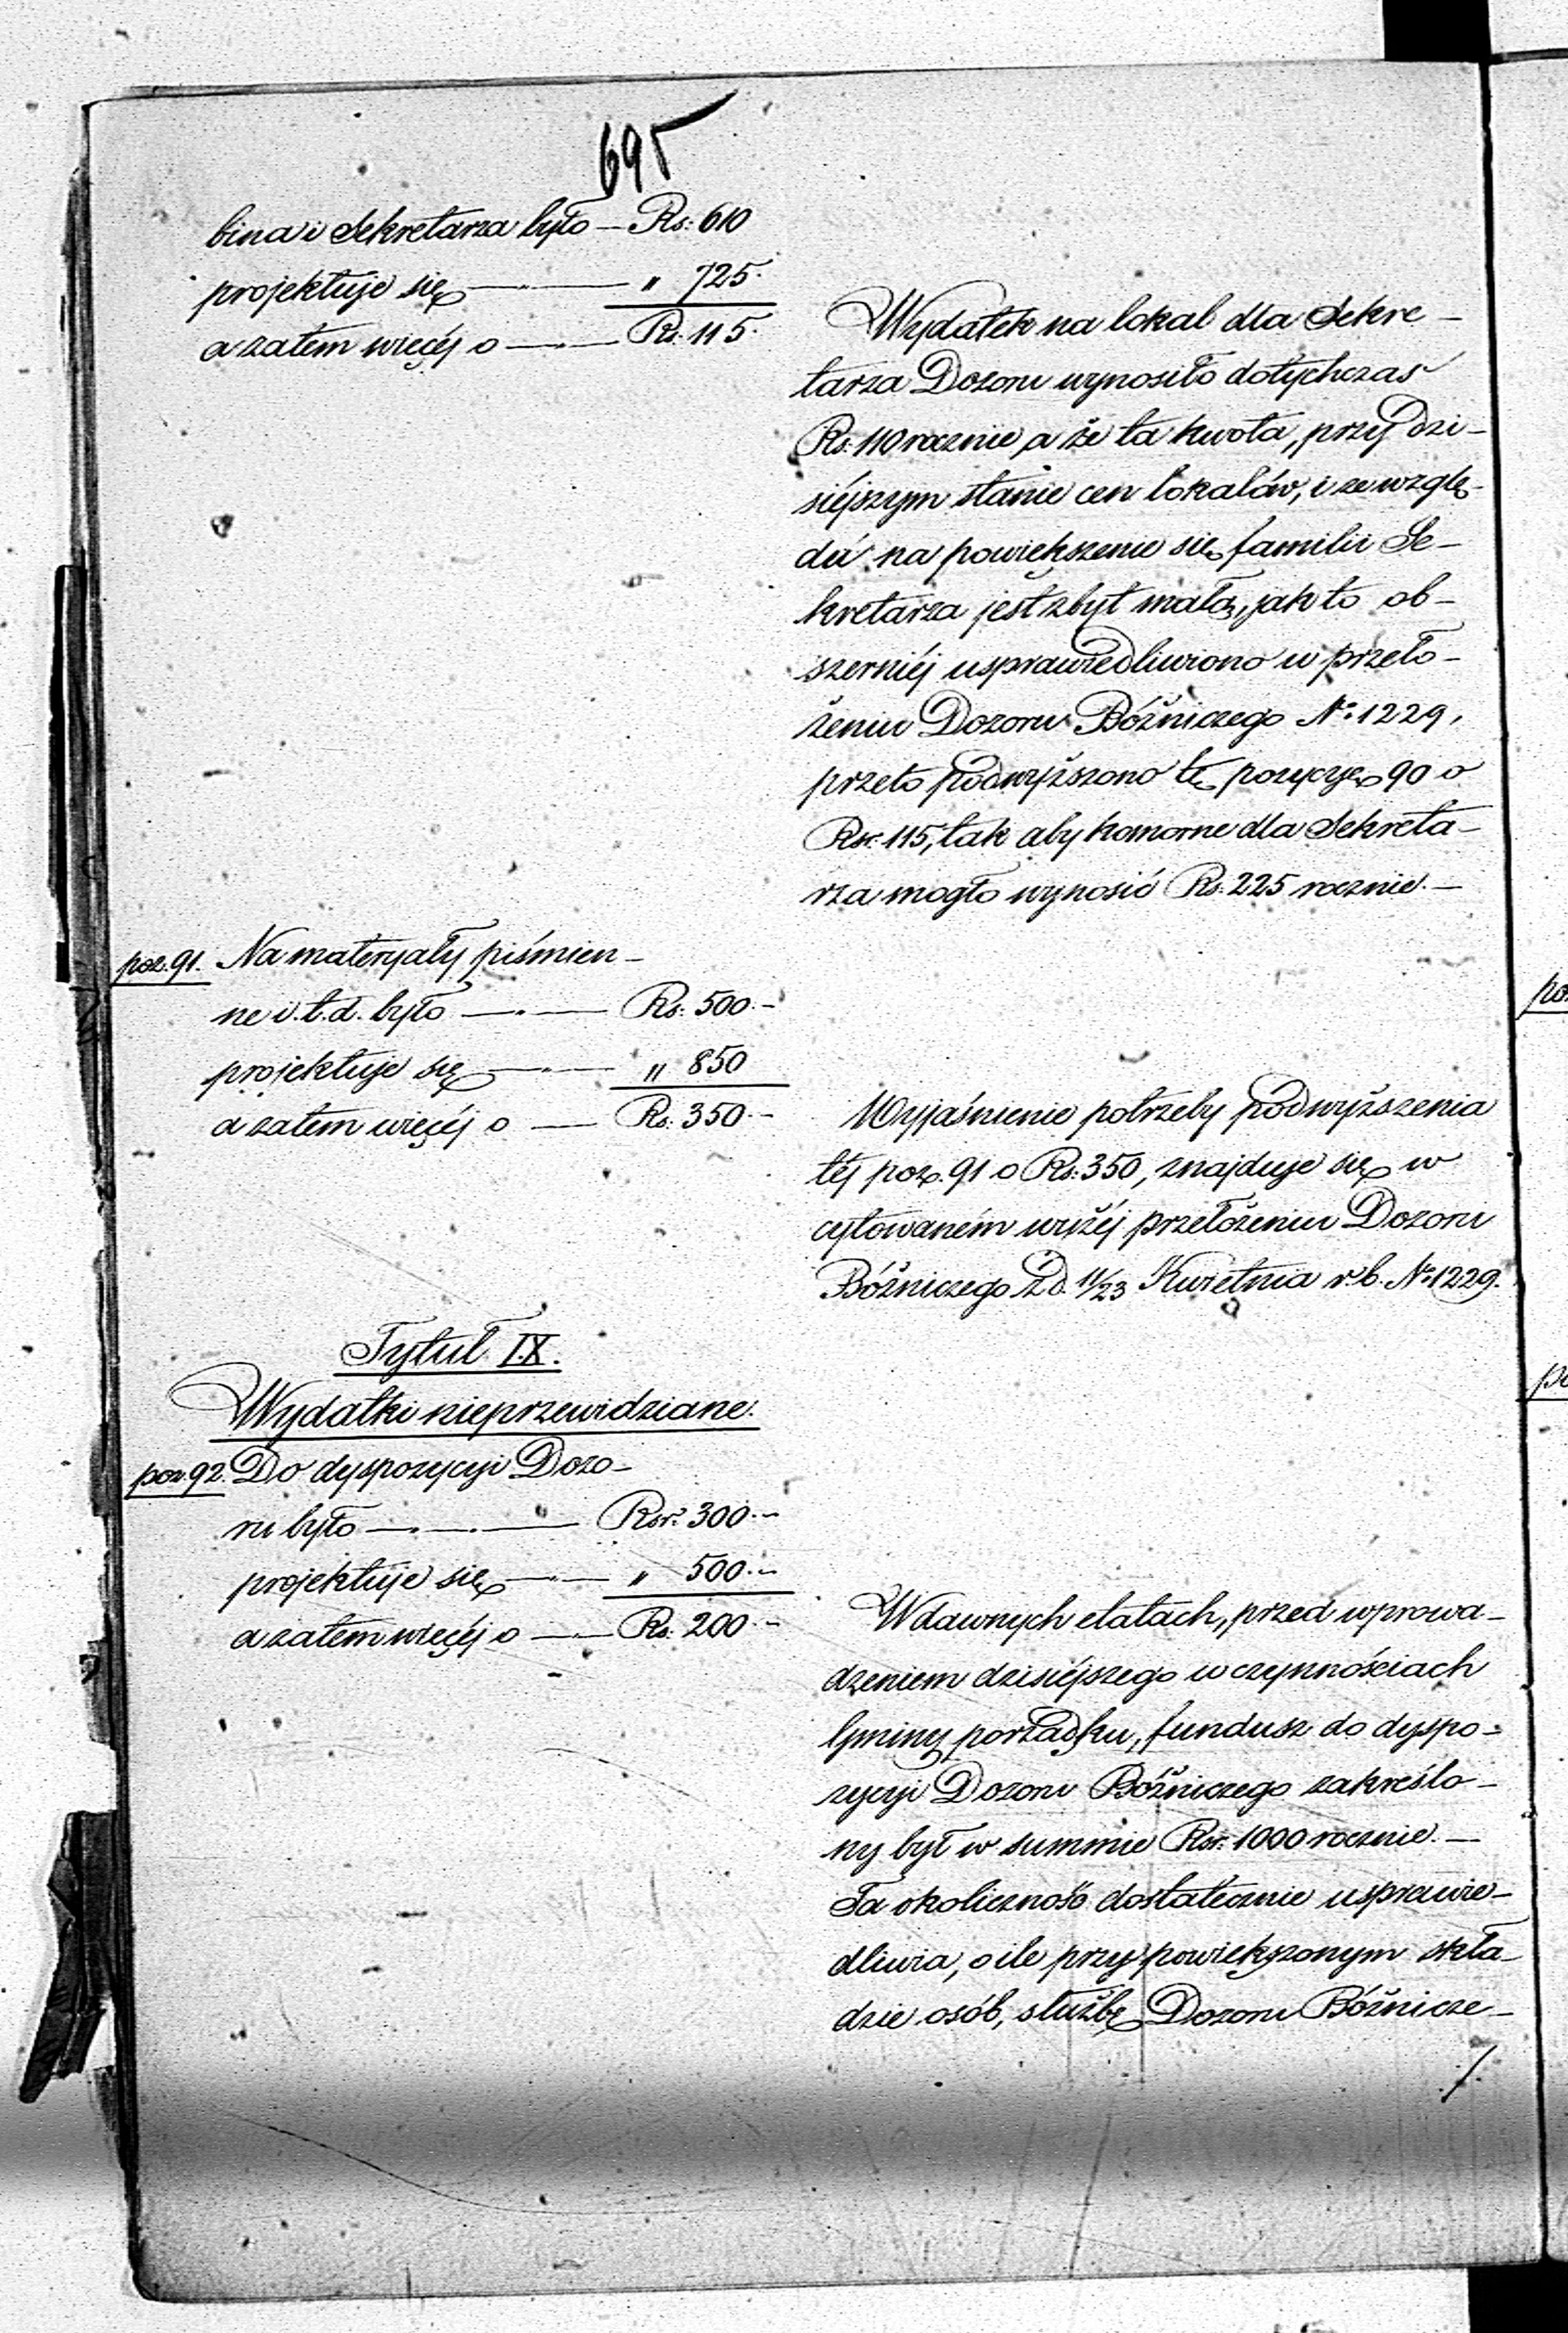 695
bina i Sekretarza było — Rs: 610
projektuje się — " 725.
a zatem więcéj o — Rs. 115.
Wydatek na lokal dla Sekre-
tarza Dozoru wynosiło dotychczas
Rs. 110 rocznie, a że ta kwota, przy dzi-
siéjszym stanie cen lokalów, i ze wzglę-
du na powiększenie się familii Se-
kretarza jest zbyt małą, jak to ob-
szerniéj usprawiedliwiono w przeło-
żeniu Dozoru Bóźniczego No. 1229,
przeto podwyższono tę pozycyę 90 o
Rsr. 115, tak aby komorne dla Sekreta-
rza mogło wynosić Rs. 225 rocznie. —
poz. 91. Na materyały piśmien-
ne i. t. d. było — Rs: 500. -
projektuje się — " 850
a zatem więcéj o — Rs: 350. -
Wyjaśnienie potrzeby podwyższenia
téj poz. 91 o Rs: 350, znajduje się w
cytowaném wyżéj przełożeniu Dozoru
Bóźniczego z d. 11/23 Kwietnia r. b. No 1229.
Tytuł IX.
Wydatki nieprzewidziane.
poz. 92. Do dyspozycyi Dozo-
ru było — Rsr. 300. -
projektuje się — " 500. -
a zatem więcéj o — Rs. 200 -
W dawnych etatach, przed wprowa-
dzeniem dzisiéjszego w czynnościach
Gminy porządku, fundusz do dyspo-
zycyi Dozoru Bóźniczego zakreślo-
ny był w summie Rsr. 1000 rocznie. —
Ta okoliczność dostatecznie usprawie-
dliwia, o ile przy powiększonym skła-
dzie osób, służbę Dozoru Bóźnicze-
./.